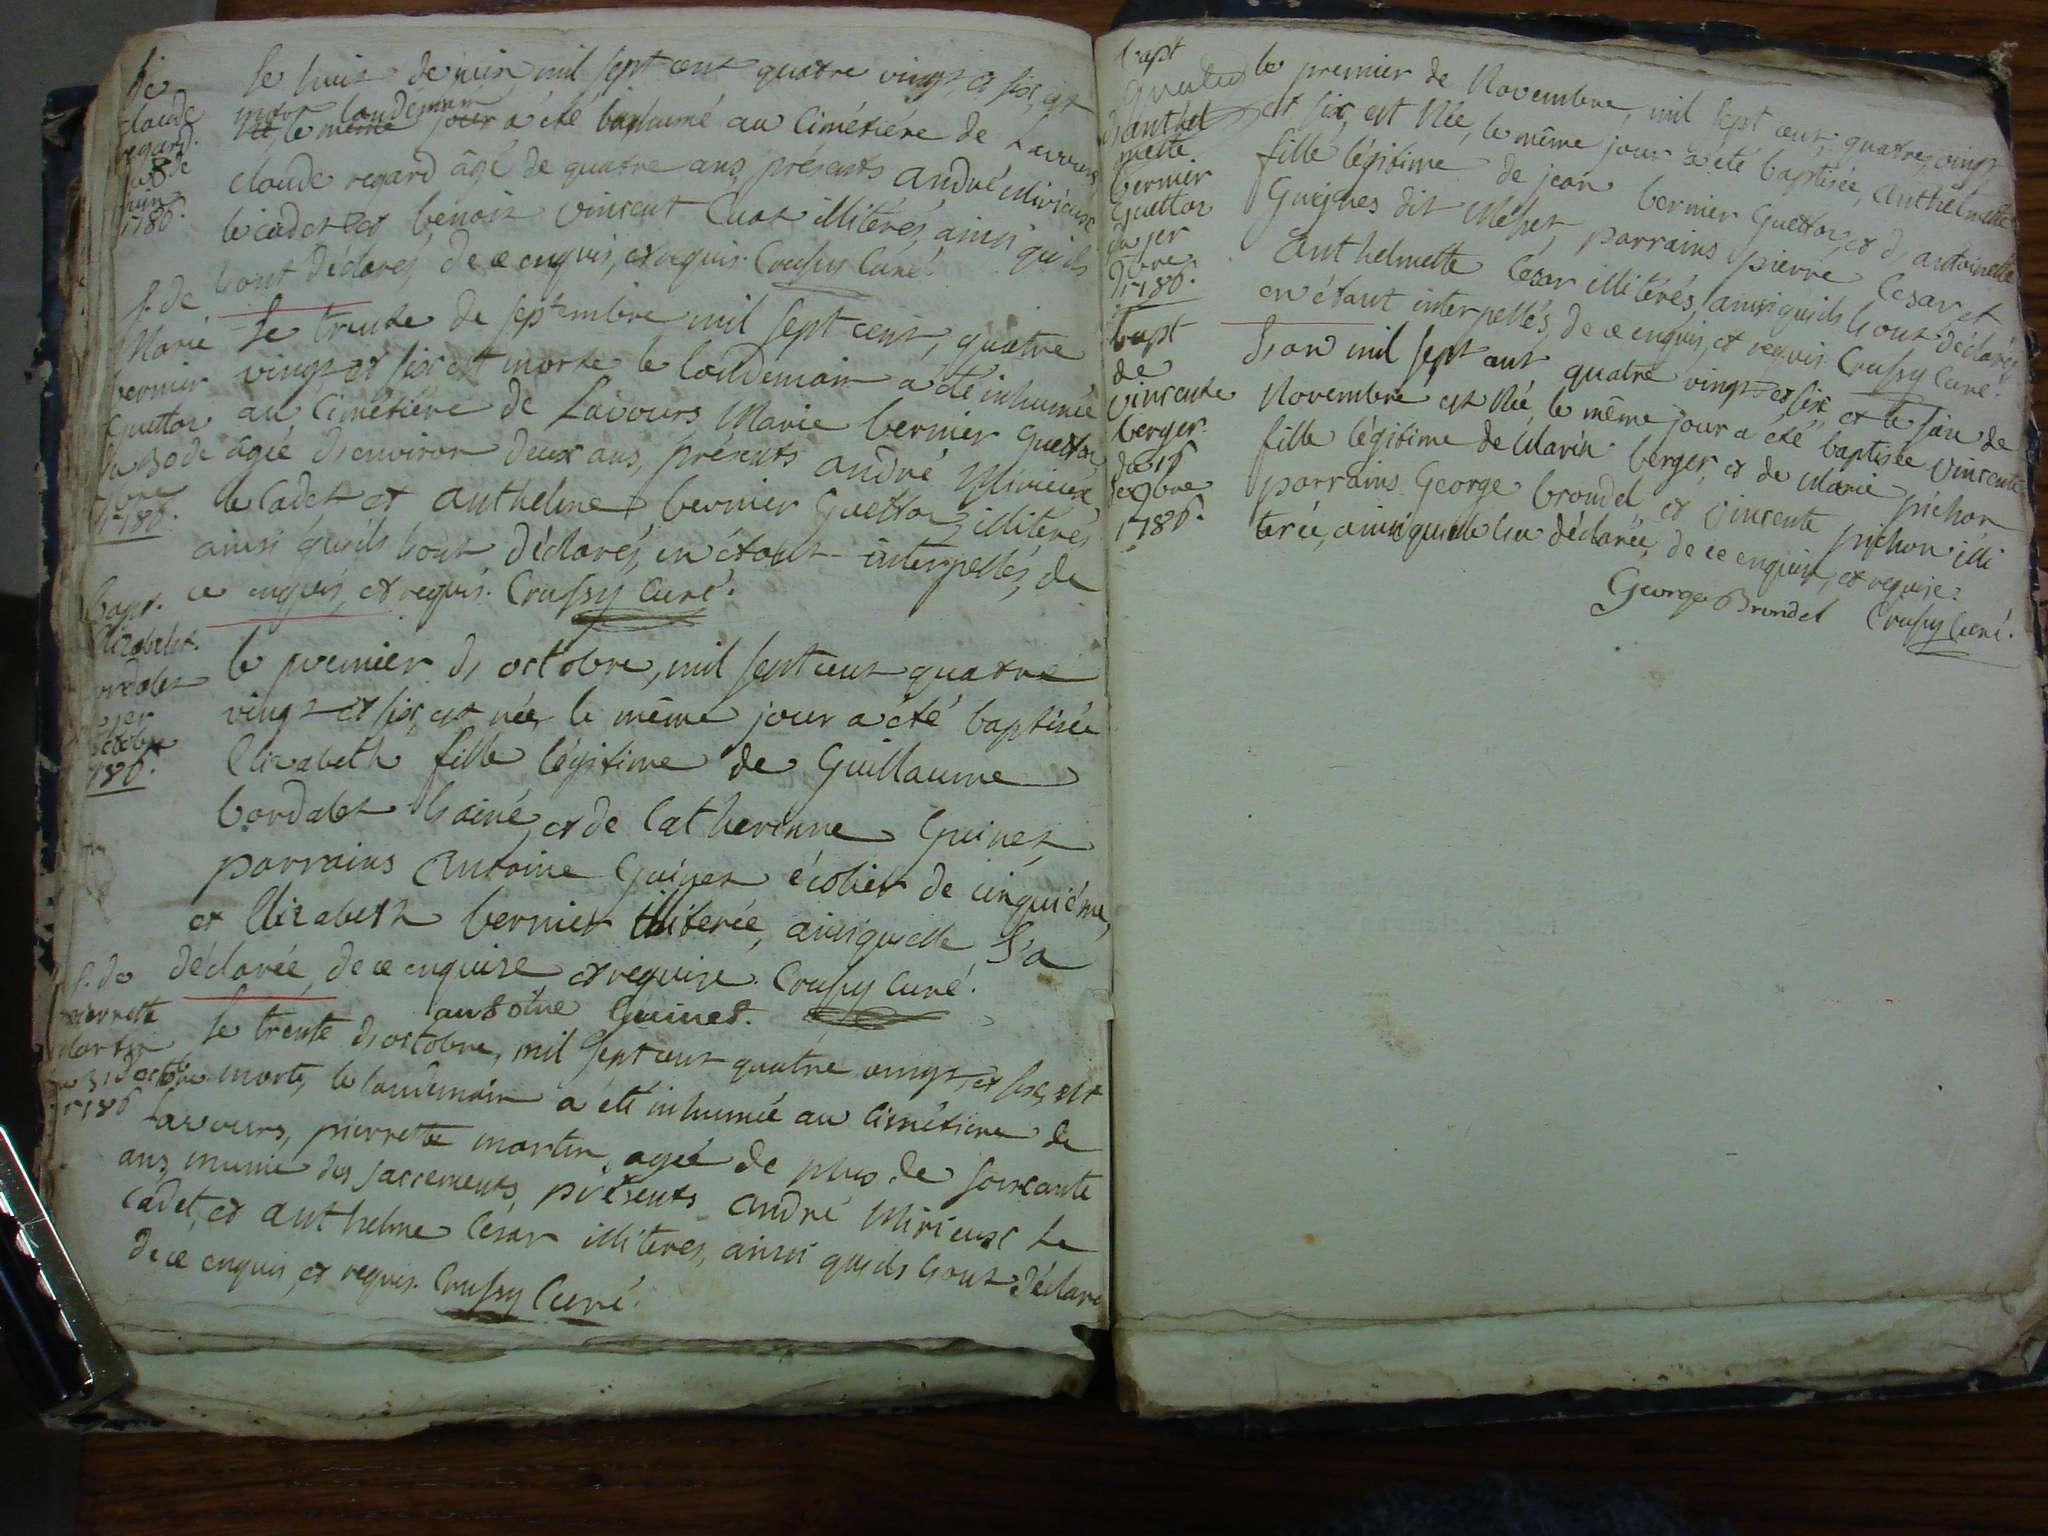 Le huit de juin mil sept cent quatre vingt et six, est
mort le landemain
a été inhumé au Cimétiére de Lavours
claude regard âgé de quatre ans, présents andré Mirieux
le cadet et benoit vincent Cuat illitérés, ainsi qu'ils
l'ont déclarés, de ce enquis, et requis. Crussy Curé.
claude
regard.
du 8 de
juin
1786.
Le trente de septembre mil sept cent, quatre
vingt et six est morte le landemain a été inhumée
au Cimétiére de Lavours Marie bernier Guettaz
âgée d'environ deux ans, présents andré Mirieux
le Cadet et anthelme bernier Guettaz, illiterés
ainsi qu'ils l'ont déclarés, en étant interpellés, de
ce enquis, et requis. Crussy Curé.
S. de
Marie
bernier
Guettaz
du 30 de
7bre
1786.
le premier d'octobre, mil sept cent quatre
vingt et six, est née, le même jour a été baptisée
Elizabeth fille légitime de Guillaume
bordalet l'ainé, et de Catherinne Guinet,
parrains Antoine Guinet écolier de cinquiéme,
et Elizabeth bernier illiterée, ainsi qu'elle l'a
déclarée, de ce enquise et requise. Crussy Curé.
antoine Guinet.
bapt.
Elizabeth
bordalet
1er
octobre
1786.
Le trente d'octobre, mil sept cent quatre vingt, et six, est
morte, le landemain a été inhumée au Cimétiere de
Lavours, pierrette martin, agée de plus de soixante
ans, munie des sacrements, présents André Mirieux Le
Cadet, et anthelme César illiteres, ainsi qu'ils l'ont déclaré
de ce enquis, et requis. Crussy Curé.
S. de
pierrette
Martin
31 octbre
1786
le premier de Novembre, mil sept cent, quatre, vingt
et six, est Née, le même jour a été baptisée, Anthelmette
fille légitime de jean bernier Guettaz, et d'antoinette
Guignes dit parrains pierre Cesar et
Anthelmette César illitérés, ainsi qu'ils l'ont déclarés
en étant interpellés, de ce enquis, et requis. Crussy Curé.
bapt
d'anthel
mette
bernier
Guettaz
du 1er
9bre.
1786.
L'an mil sept cent quatre vingt et six et le saize de
Novembre est Née, le même jour a été baptisée vincente
fille légitime de Marin berger, et de Marie pichon
parrains George brondel et vincente pichon illi
terée, ainsi qu'elle l'a déclarée, de ce enquise, et requise.
George Brondel Crussy Curé.
bapt
de
vincente
berger.
du 16
9bre
1786.